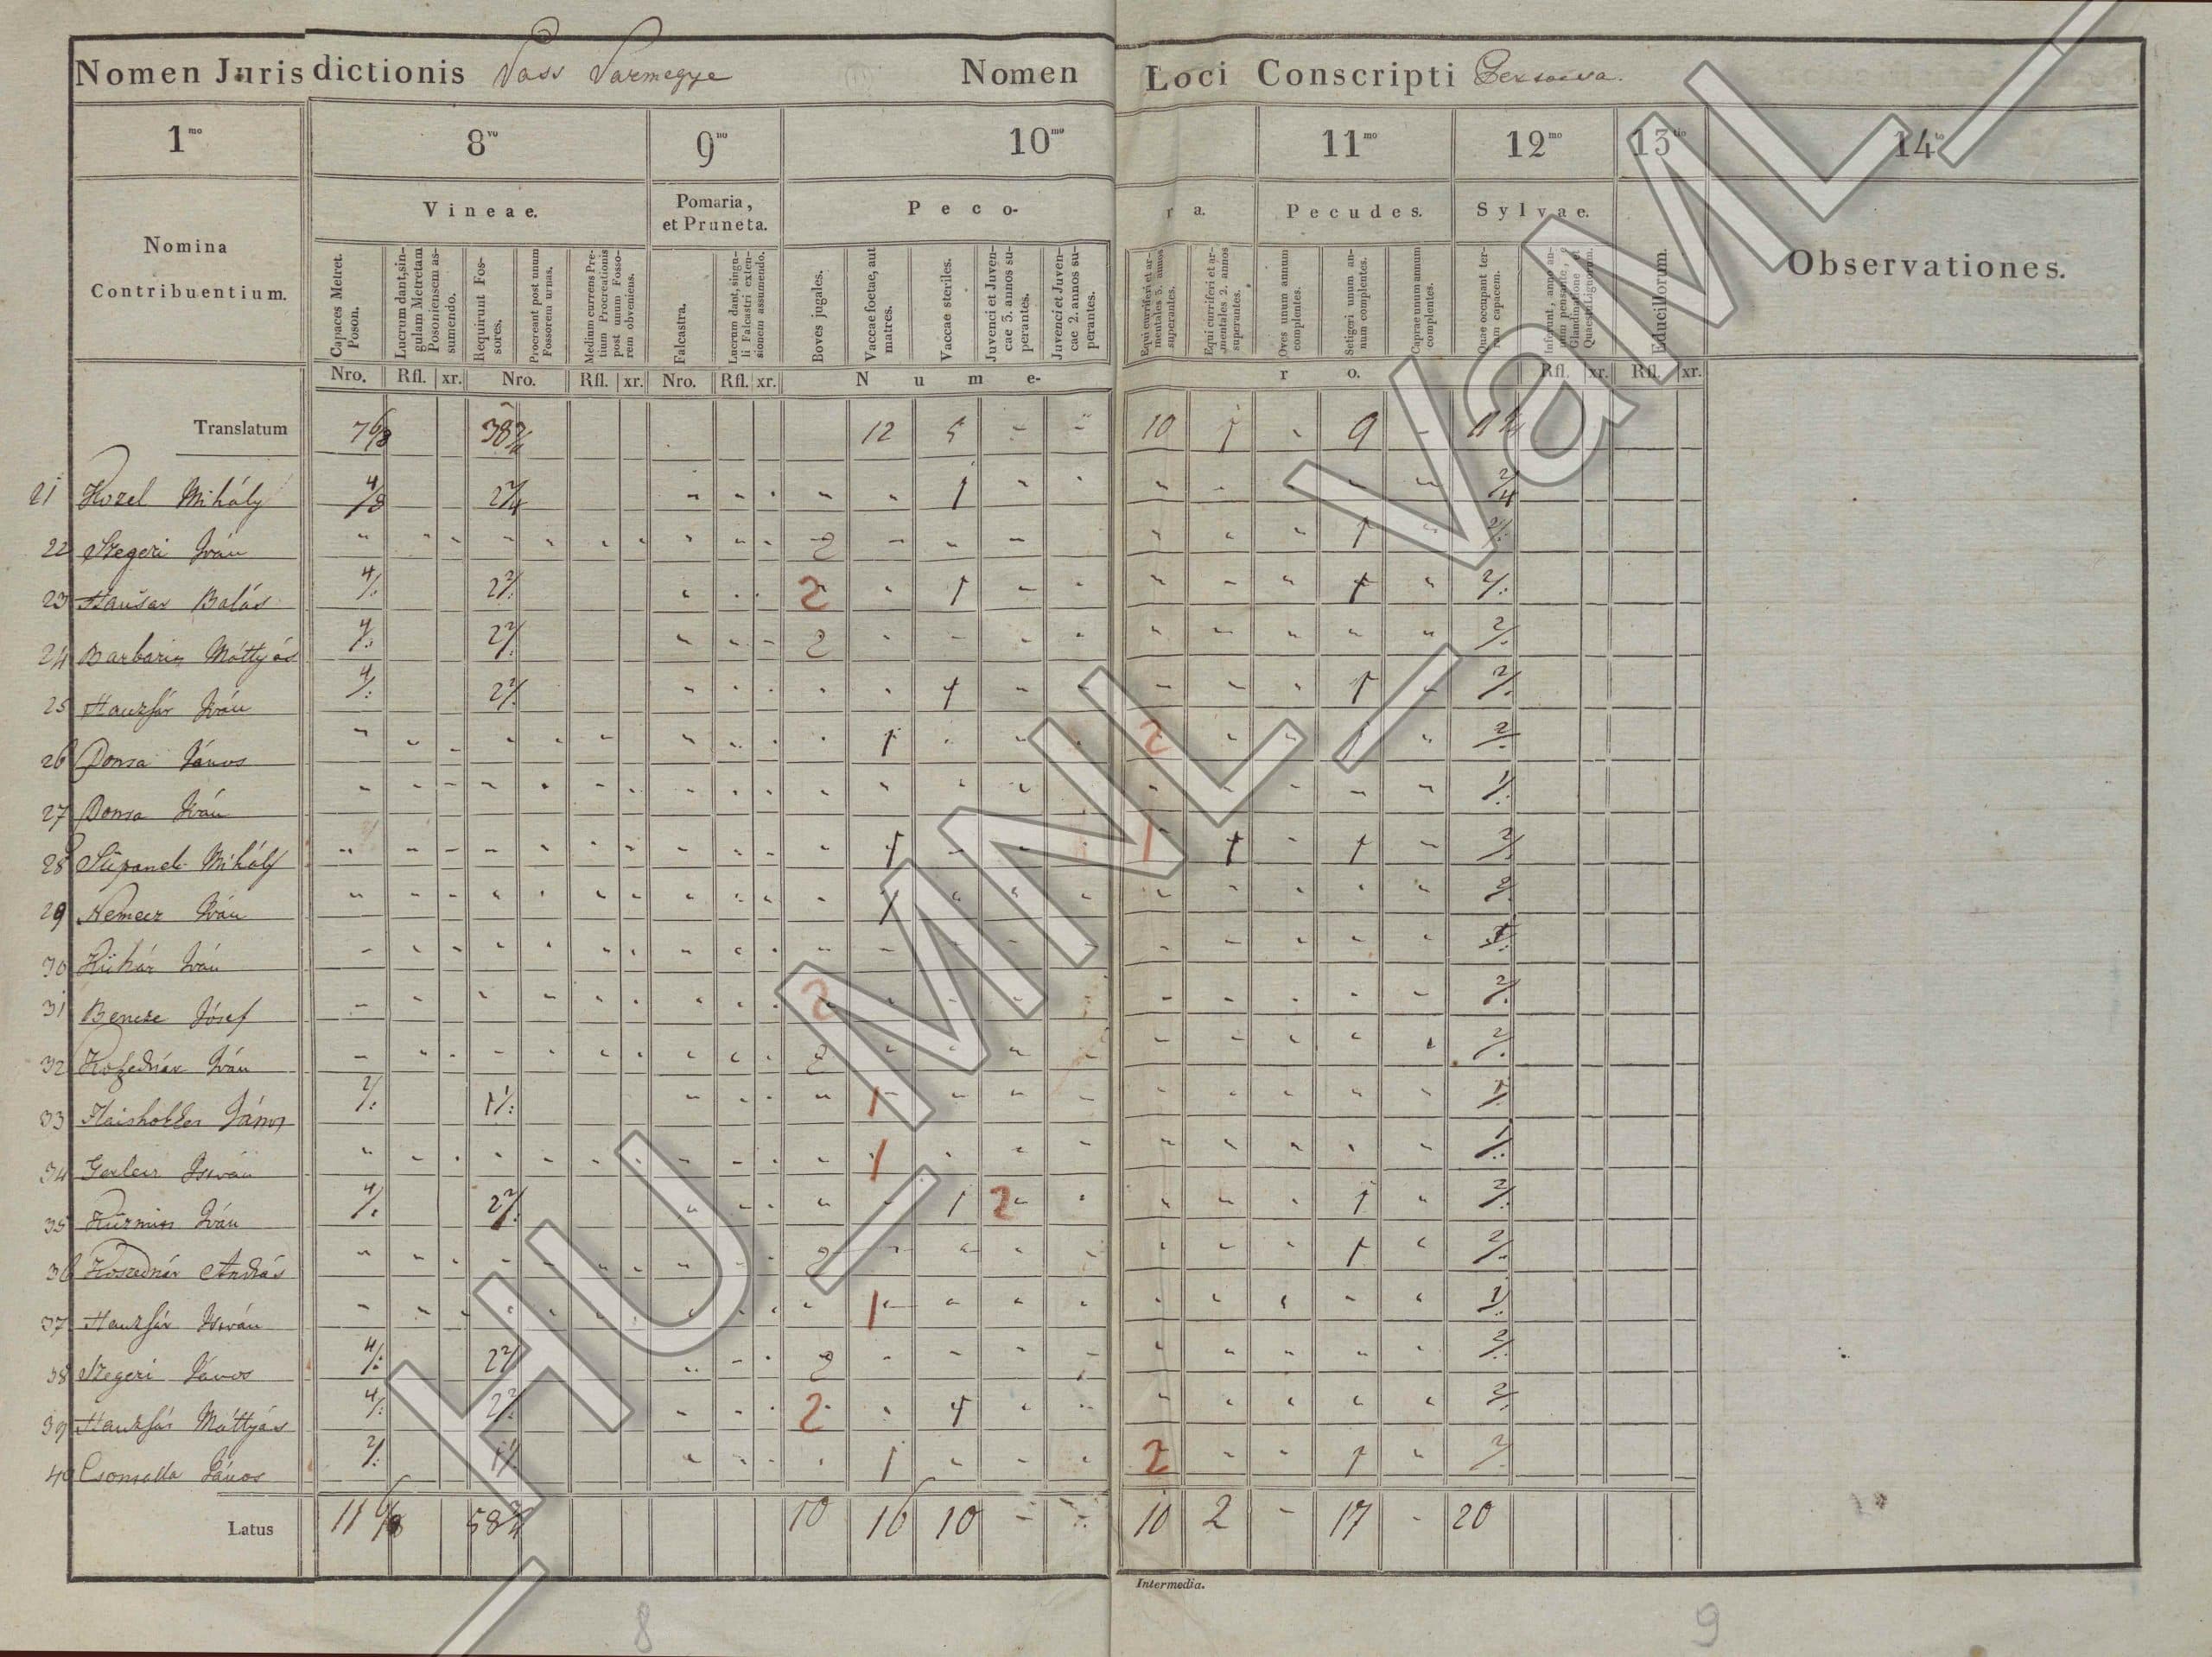 Nomen Jurisdictionis Vass Varmegye Nomen Loci Conscripti
1mo 8vo 9no 10mo 11mo 12mo 13tio 14to
Nomina Contribuentium.
Vineae.
Pomaria, et Pruneta.
Peco- ra.
Pecudes.
Sylvae.
Educillorum.
Observationes.
Capaces Metret. Poson.
Lucrum dant, singulam Metretam Posoniensem assumendo.
Requirunt Fossores.
Procreant post unum Fossorem urnas.
Medium currens Pretium Procreationis post unum Fossorem obveniens.
Falcastra.
Lucrum dant, singuli Falcastri extensionem assumendo.
Boves jugales.
Vaccae foetae, aut matres.
Vaccae steriles.
Juvenci et Juvencae 3. annos superantes.
Juvenci et Juvencae 2. annos superantes.
Equi curriferi et armentales 3. annos superantes.
Equi curriferi et armentales 2. annos superantes.
Oves unum annum complentes.
Setigeri unum annum complentes.
Caprae unum annum complentes.
Quae occupant terram capacem.
Nro. Rfl. xr. Nro. Rfl. xr. Nro. Rfl. xr. N u m e- r o. Rfl. xr. Rfl. xr.
Translatum 7 6/8 38 3/4 12 5 - - 10 1 - 9 -
21 Kozel Mihály 4/8 2 2/4 1 2/4
22 Szegeri Iván 2 1
23 Balás 4/: 2 2/: 2 1 1 2/:
24 Máttyás 4/: 2 2/: 2 2/:
25 Hauzsár Iván 4/: 2 2/: 1 1 2/:
26 Donsa János 1 2 1 2/:
27 Donsa Iván 1/:
28 Mihály 1 1 1 1 2/:
29 Nemecz Iván 1 2/:
30 Kühár Iván
31 Bencze Jósef 2 2/:
32 Iván 2 2/:
33 János 2/: 1 1/: 1 1/:
34 István 1 1/:
35 Iván 4/: 2 2/: 1 2 1 2/:
36 András 2 1 2/:
37 Hauzsár István 1 1/:
38 Szegeri János 4/: 2 2/: 2 2/:
39 Hauzsár Máttyás 4/: 2 2/: 2 1 2/:
40 János 2/: 1 1/: 1 2 1 2/:
Latus 11 6/8 58 3/4 10 16 10 - - 10 2 - 17 - 20
Intermedia.
8 9
_HU_MNL_VaML_